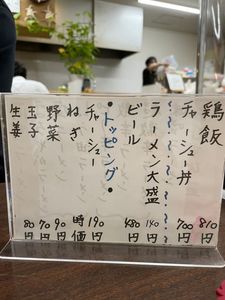 鶏飯 810円
チャーシュー丼 700円
ラーメン大盛 140円
ビール 480円
・トッピング・
チャーシュー 190円
ねぎ 時価
野菜 90円
玉子 70円
生姜 80円